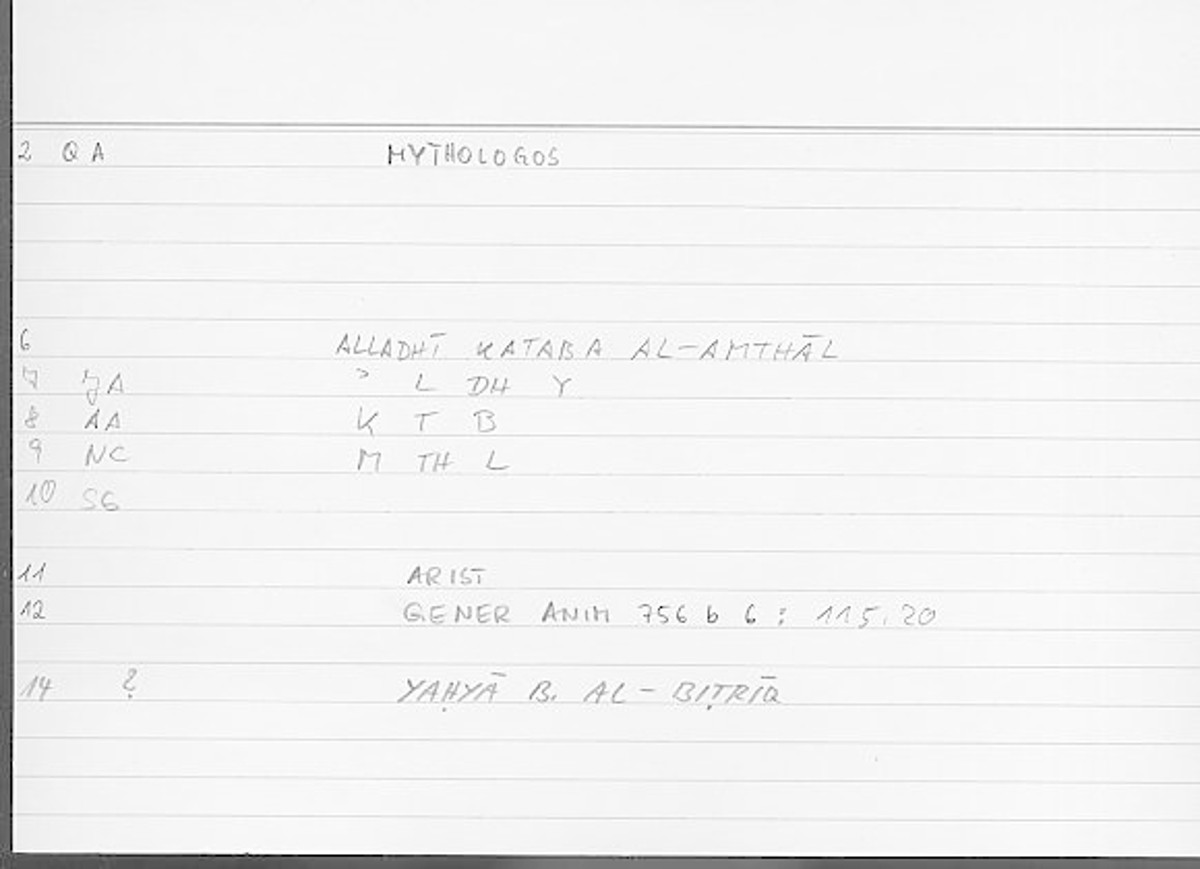 2 QA MYTHOLOGOS
6 ALLADHĪ KATABA AL-AMTHĀL
7 JA ʾ L DH Y
8 AA K T B
9 NC M TH L
10 SG
11 ARIST
12 GENER ANIM 756 b 6 : 115.20
14 ? YAḤYĀ B. AL-BIṬRĪQ